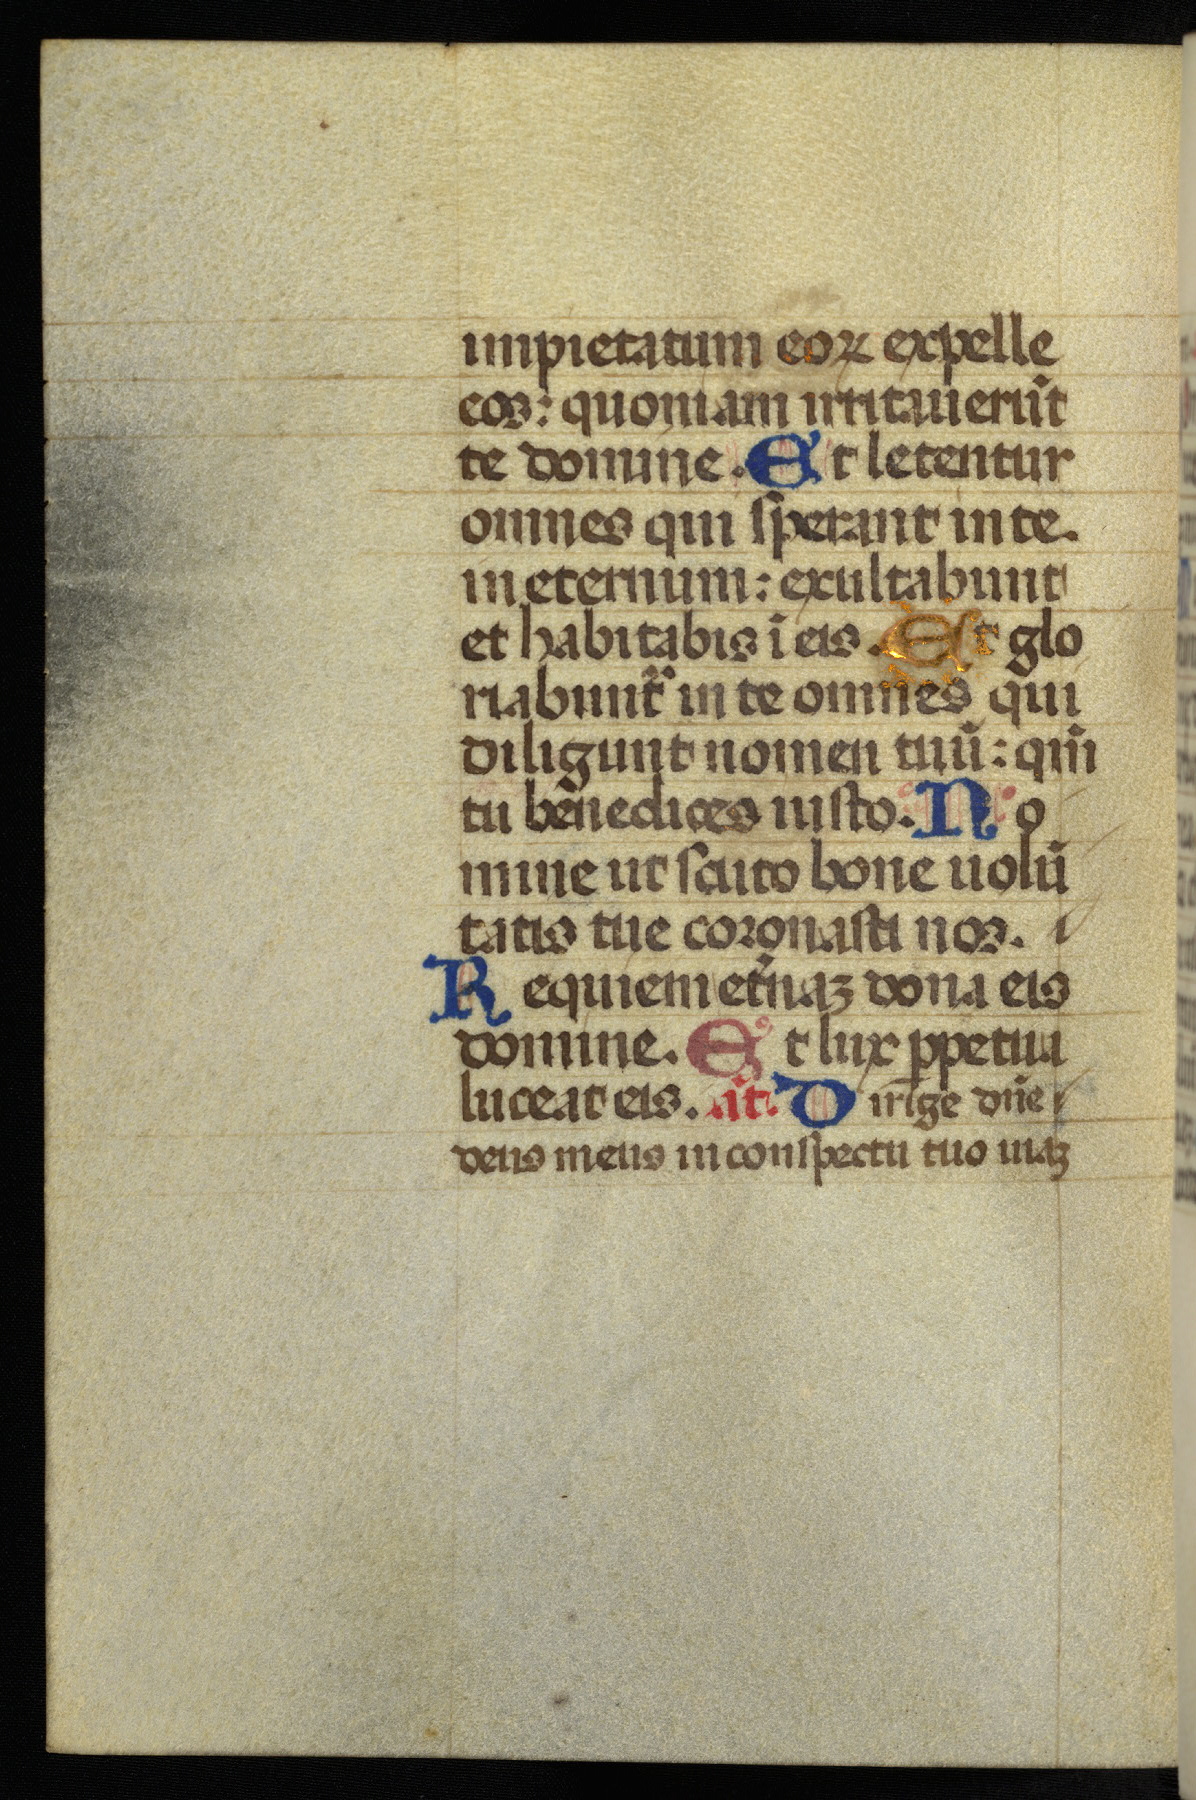 impietatum eoꝝ expelle
eos: quoniam irritauerūt
te domine. Et letentur
omnes qui sperant in te.
in eternum: exultabunt
et habitabis ī eis. Et glo
riabunt᷑ in te omnes qui
diligunt nomen tuū: qm̄
tu bn̄edices iusto. Do
mine ut scuto bone uolū
tatis tue coronasti nos.
Requiem et̓naꝫ dona eis
domine. Et lux ꝑpetua
luceat eis. an̄t. Dirige dn̄e
deus meus in conspectu tuo uiaꝫ